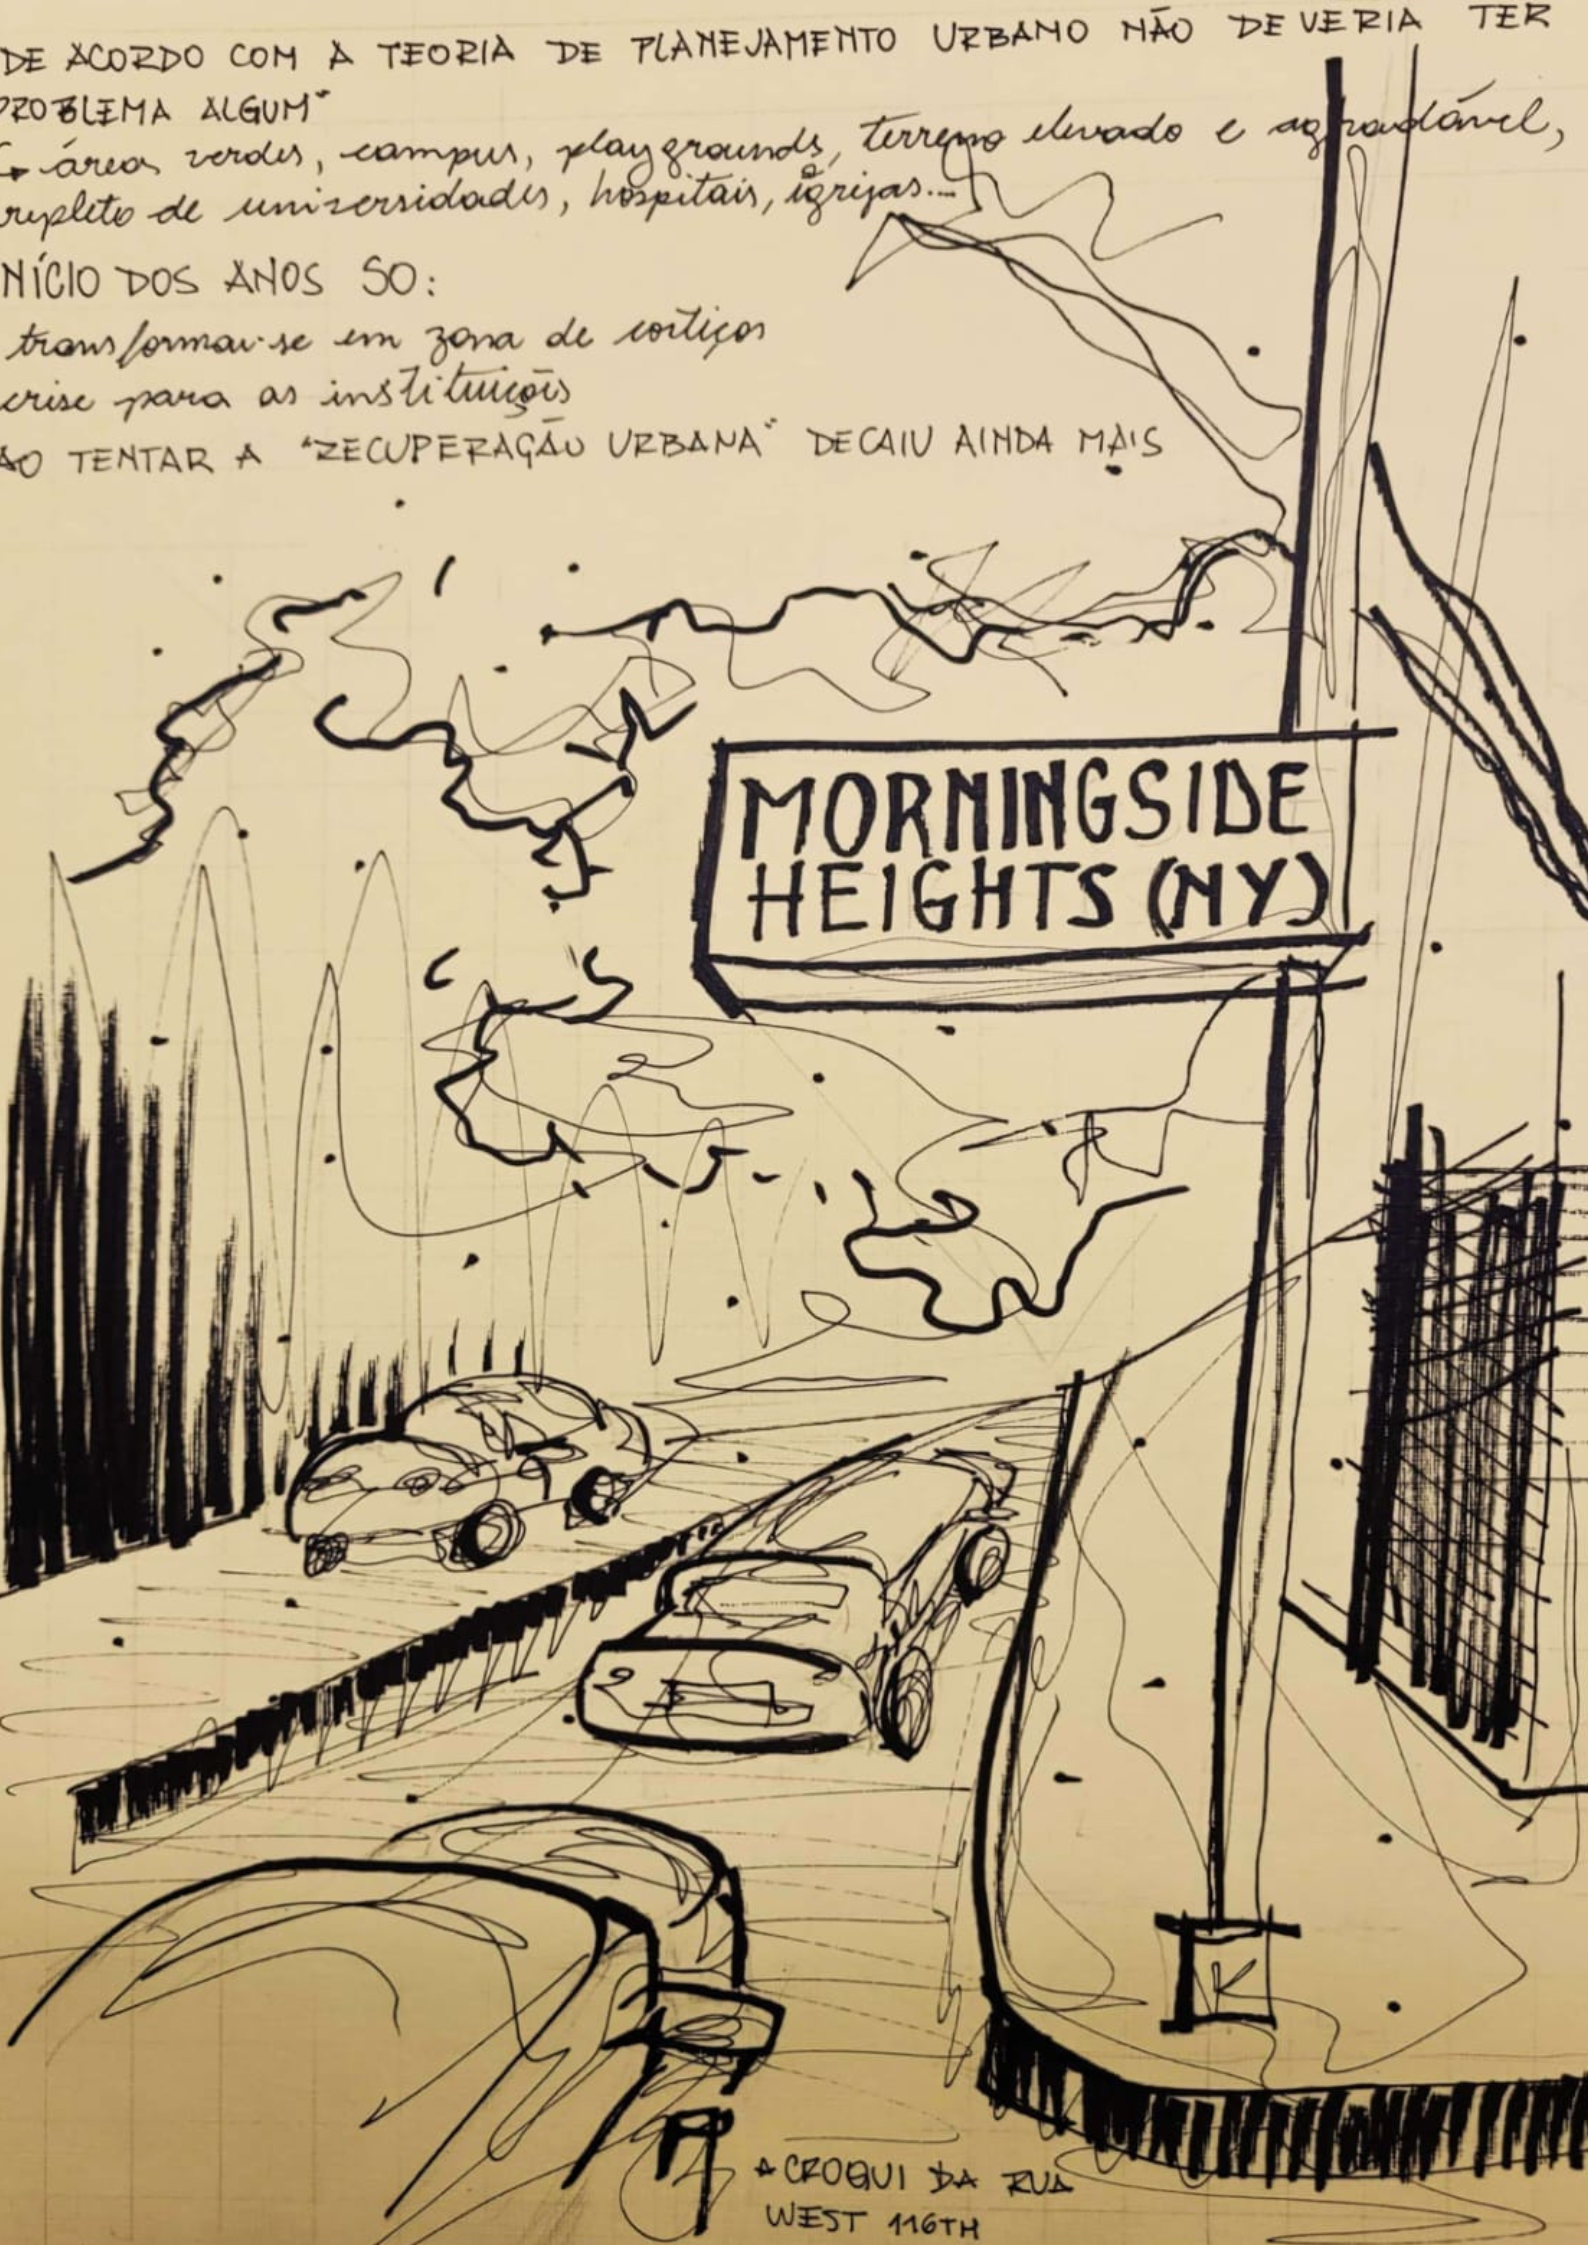 DE ACORDO COM A TEORIA DE PLANEJAMENTO URBANO NÃO DEVERIA TER
PROBLEMA ALGUM"
áreas verdes, campus, playgrounds, terreno elevado e agradável,
repleto de universidades, hospitais, igrejas...
INÍCIO DOS ANOS 50:
transformou-se em zona de cortiços
crise para as instituições
AO TENTAR A "RECUPERAÇÃO URBANA" DECAIU AINDA MAIS
MORNINGSIDE
HEIGHTS (NY)
CROQUI DA RUA
WEST 116TH